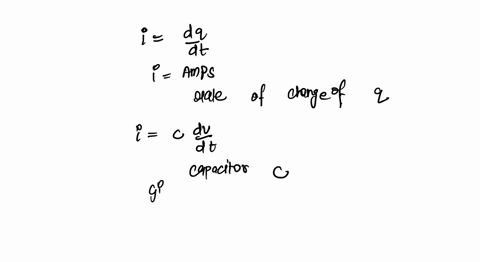 i = dq/dt
i = Amps
rate of change of q
i = c dv/dt
capacitor C
gi